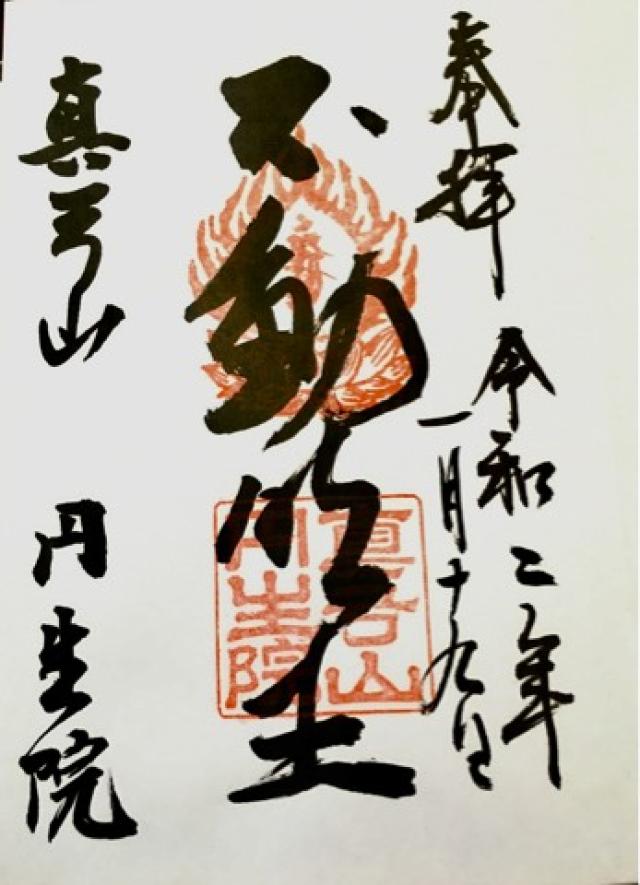 奉拝
令和二年
一月十九日
不動明王
真弓山
円生院
真弓山
円生院